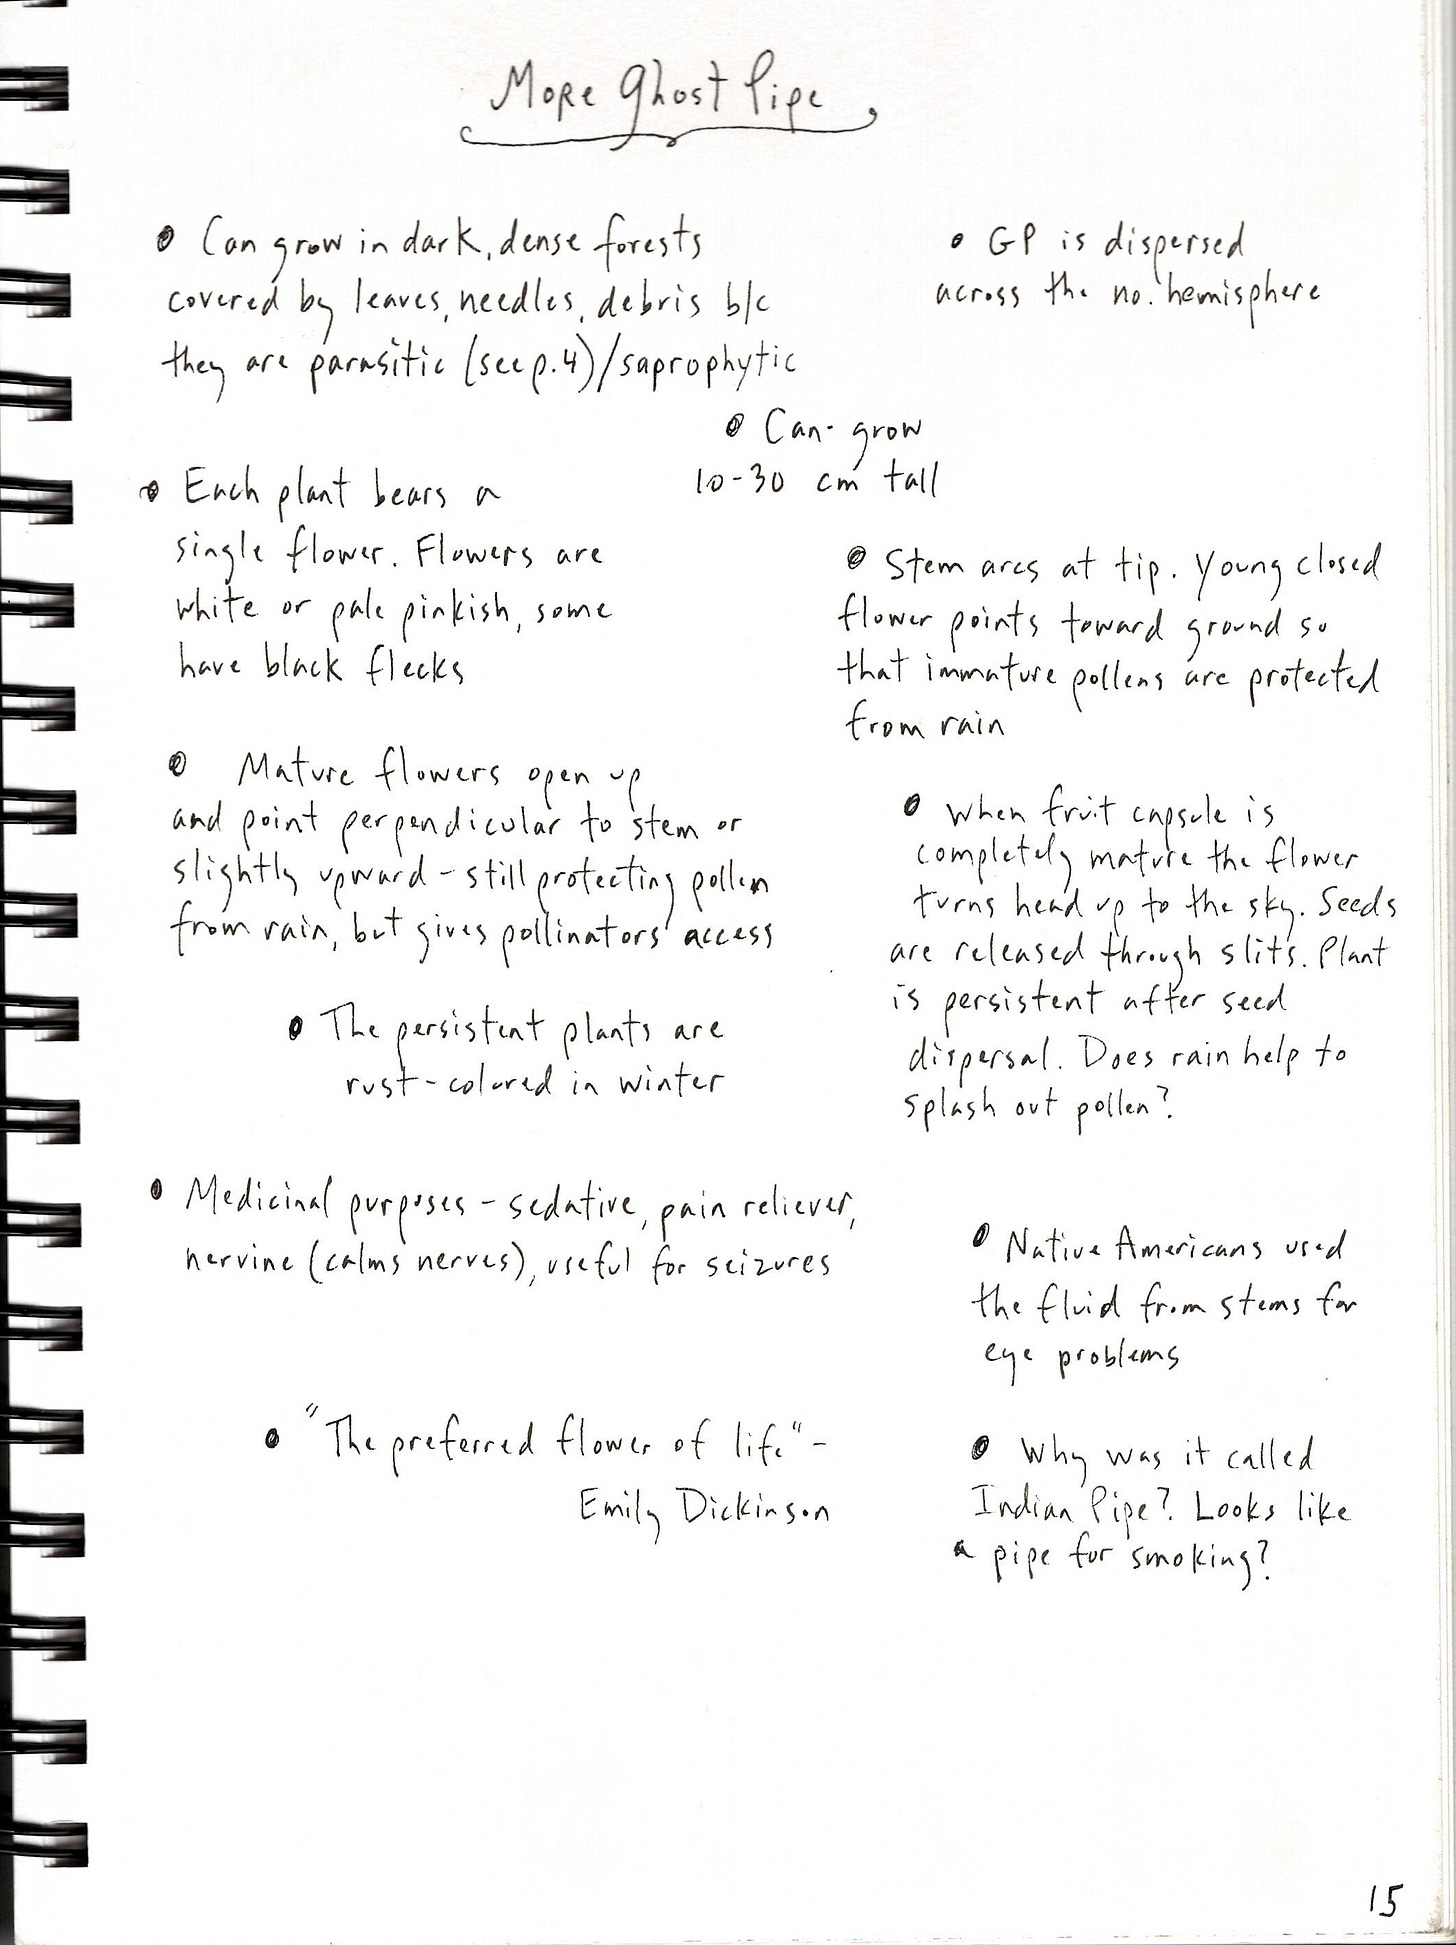 More Ghost Pipe
• Can grow in dark, dense forests
covered by leaves, needles, debris b/c
they are parasitic (see p.4)/saprophytic
• GP is dispersed
across the no. hemisphere
• Can grow
10-30 cm tall
• Each plant bears a
single flower. Flowers are
white or pale pinkish, some
have black flecks
• Stem arcs at tip. Young closed
flower points toward ground so
that immature pollens are protected
from rain
• Mature flowers open up
and point perpendicular to stem or
slightly upward - still protecting pollen
from rain, but gives pollinators access
• When fruit capsule is
completely mature the flower
turns head up to the sky. Seeds
are released through slits. Plant
is persistent after seed
dispersal. Does rain help to
splash out pollen?
• The persistent plants are
rust-colored in winter
• Medicinal purposes - sedative, pain reliever,
nervine (calms nerves), useful for seizures
• Native Americans used
the fluid from stems for
eye problems
• "The preferred flower of life" -
Emily Dickinson
• Why was it called
Indian Pipe? Looks like
a pipe for smoking?
15